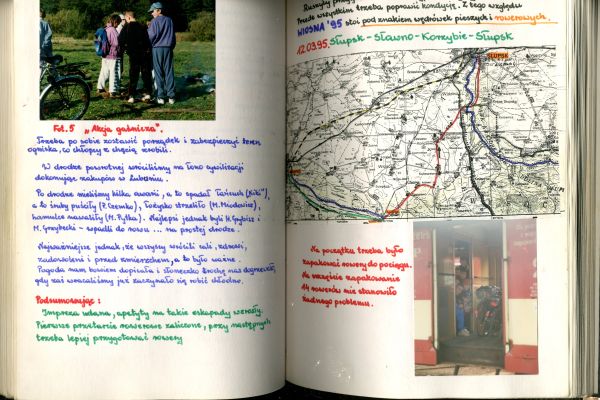 Fot. 5 „Akcja gaśnicza".
Trzeba po sobie zostawić porządek i zabezpieczyć teren
ogniska, co chłopcy z chęcią zrobili.
W drodze powrotnej wróciliśmy na łono cywilizacji
dokonując zakupów w Lubuniu.
Po drodze mieliśmy kilka awarii, a to spadał łańcuch („Kiki"),
a to śruby puściły (P. Czemko), łożysko strzeliło (M. Miodowicz),
hamulce nawaliły (M. Pytka). Najlepsi jednak byli H. Grybisz i
M. Grzybecki - wpadli do rowu ... na prostej drodze.
Najważniejsze jednak, że wszyscy wrócili cali, zdrowi,
zadowoleni i przed zmierzchem, a to było ważne.
Pogoda nam bowiem dopisała i słoneczko trochę nas dogrzewało,
gdy zaś wracaliśmy już zaczynało się robić chłodno.
Podsumowując :
Impreza udana, apetyty na takie eskapady wzrosły.
Pierwsze przetarcie rowerowe zaliczone, przy następnych
trzeba lepiej przygotować rowery
Przede wszystkim trzeba poprawić kondycję. Z tego względu
WIOSNA '95 stoi pod znakiem wędrówek pieszych i rowerowych.
12.03.95. Słupsk - Sławno - Korzybie - Słupsk
SŁUPSK
Na początku trzeba było
zapakować rowery do pociągu.
Na szczęście zapakowanie
14 rowerów nie stanowiło
żadnego problemu.